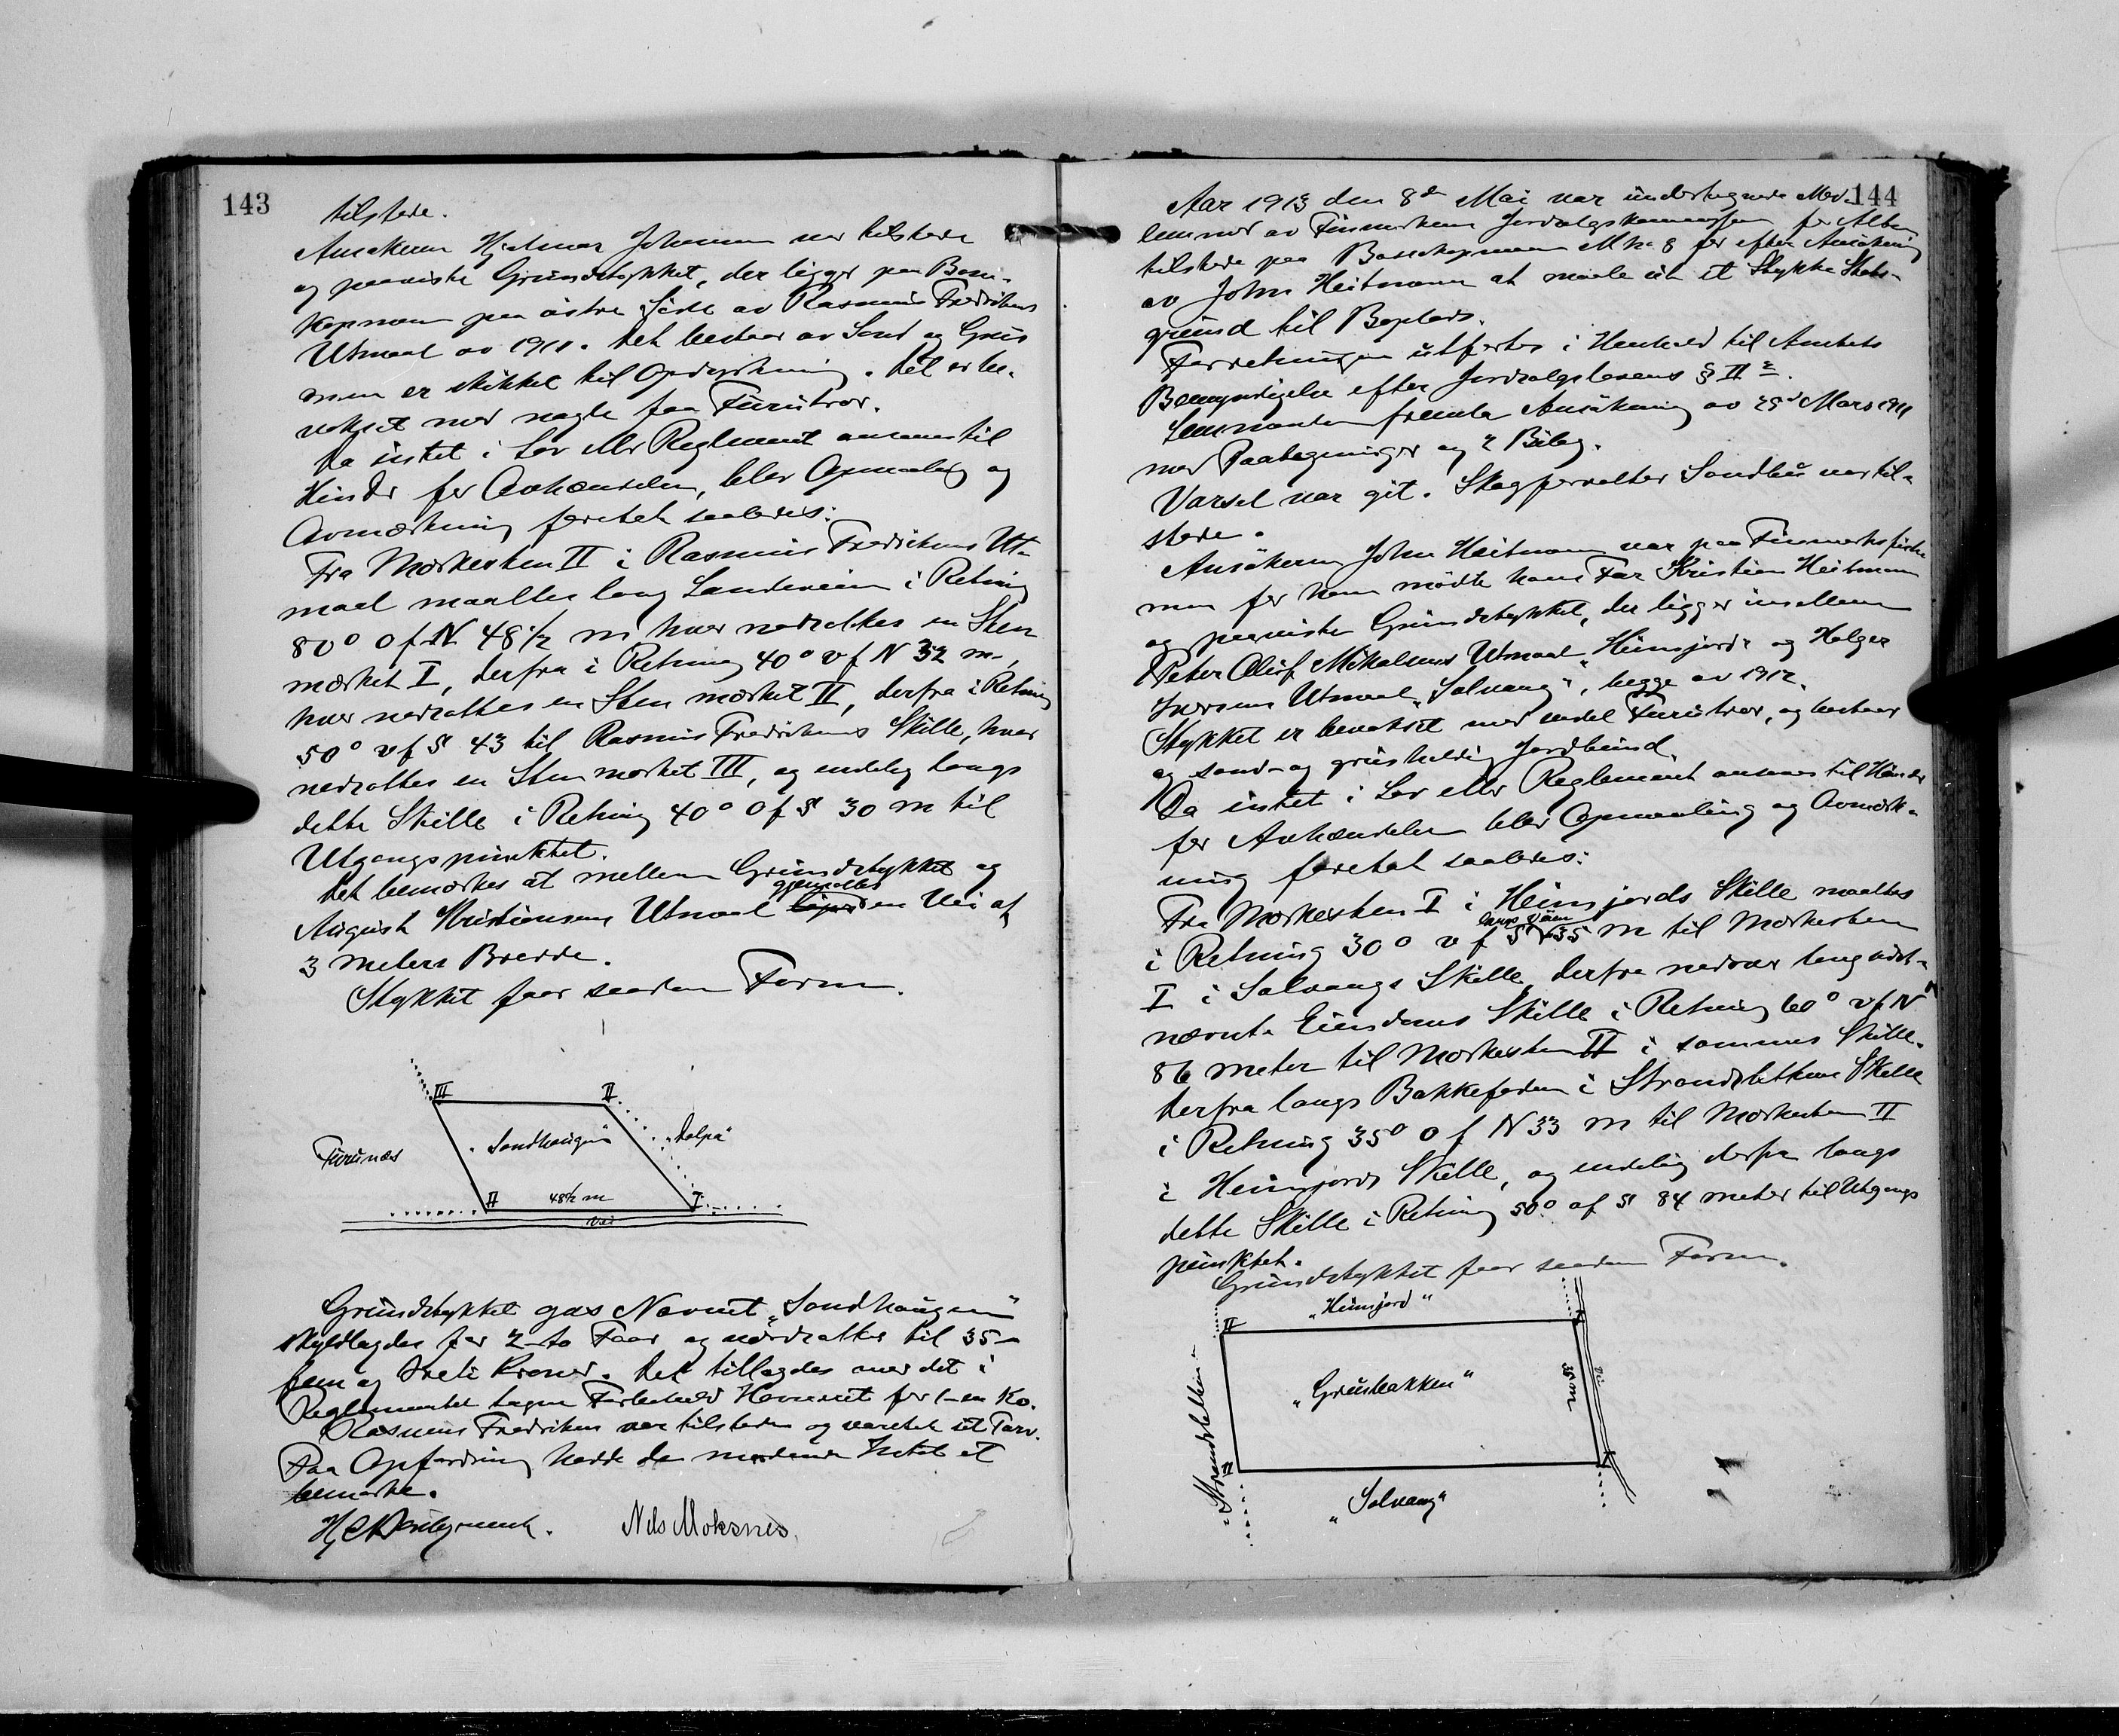 143
tilstede.
Ansøkeren Hjalmar Johansen var tilstede
og paaviste Grundstykket, der ligger paa Bosse-
kopmoen paa østre Side av Rasmus Fredriksens
Utmaal av 1911. Det bestaar av Sand og Grus
men er skikket til Opdyrkning. Det er be-
vokset med nogle faa Furutrær.
Da intet i Lov eller Reglement ansaaes til
Hinder for Avhændelsen, blev Opmaaling og
Avmerkning foretat saaledes:
Fra Merkesten II i Rasmus Fredriksens Ut-
maal maaltes lang Landeveien i Retning
80° O f N 48 1/2 m hvor nedsattes en Sten
merket I, derfra i Retning 40° v f N 32 m,
hvor nedsattes en Sten merket II, derfra i Retning
50° v f S 43 til Rasmus Fredriksens Skille, hvor
nedsattes en Sten merket III, og endelig langs
dette Skille i Retning 40° O f S 30 m til
Utgangspunktet.
Det bemerkes at mellem Grundstykket og
gjensattes
August Kristiansens Utmaal en Vei af
3 meters Bredde.
Stykket faar saadan Form.
III
II
Furunæs
"Sandhaugen"
II
48 1/2 m
I
Vei
Grundstykket gaves Navnet "Sandhaugen"
skyldlagdes for 2 - to Faar og værdsattes til 35 -
fem og treti Kroner. Det tillagdes med det i
Reglementet tagne Forbehold Havneret for 1 - en Ko.
Rasmus Fredriksen var tilstede og varetok sit Tarv.
Paa Opfordring hadde de mødende Intet at
bemerke.
Nils Moksnes.
144
Aar 1913 den 8de Mai var undertegnede Med-
lemmer av Finmarkens Jordsalgskommission for Alten
tilstede paa Bossekopmoen M no 8 for efter Ansøkning
av John Heitmann at maale ut et Stykke Stats-
grund til Boplads.
Forretningen utførtes i Henhold til Amtets
Bemyndigelse efter Jordsalgslovens § II
Lensmanden fremla Ansøkning av 29de Mars 1911
med Paategninger og 2 Bilag.
Varsel var git. Skogforvalter Sandbu var til-
stede.
Ansøkeren John Heitmann var paa Finmarksfiske
men for ham mødte hans Far Kristian Heitmann
og paaviste Grundstykket, der ligger imellem
Peter Oluf Mikalsens Utmaal "Heimjord" og Holger
Iversens Utmaal "Solvang", begge av 1912.
Stykket er bevokset med endel Furutrær, og bestaar
og sand- og grusholdig Jordbund.
Da intet i Lov eller Reglement ansaaes til Hinder
for Avhændelsen blev Opmaaling og Avmerk-
ning foretat saaledes:
Fra Merkesten I i Heimjords Skille maaltes
langs Veien
i Retning 30° v f S 35 m til Merkesten
I i Solvangs Skille, derfra nedover lang sidst-
nævnte Eiendoms Skille i Retning 60° v f N
86 meter til Merkesten II i samme Skille.
Derfra langs Bakkefoden i Strandslettens Skille
i Retning 35° O f N 33 m til Merkesten II
i Heimjords Skille, og endelig derfra langs
dette Skille i Retning 50° of S 84 meter til Utgangs
punktet.
Grundstykket faar saadan Form.
"Heimjord"
II
I
"Strandsletten"
"Grusbakken"
35 m
Vei
II
I
"Solvang"